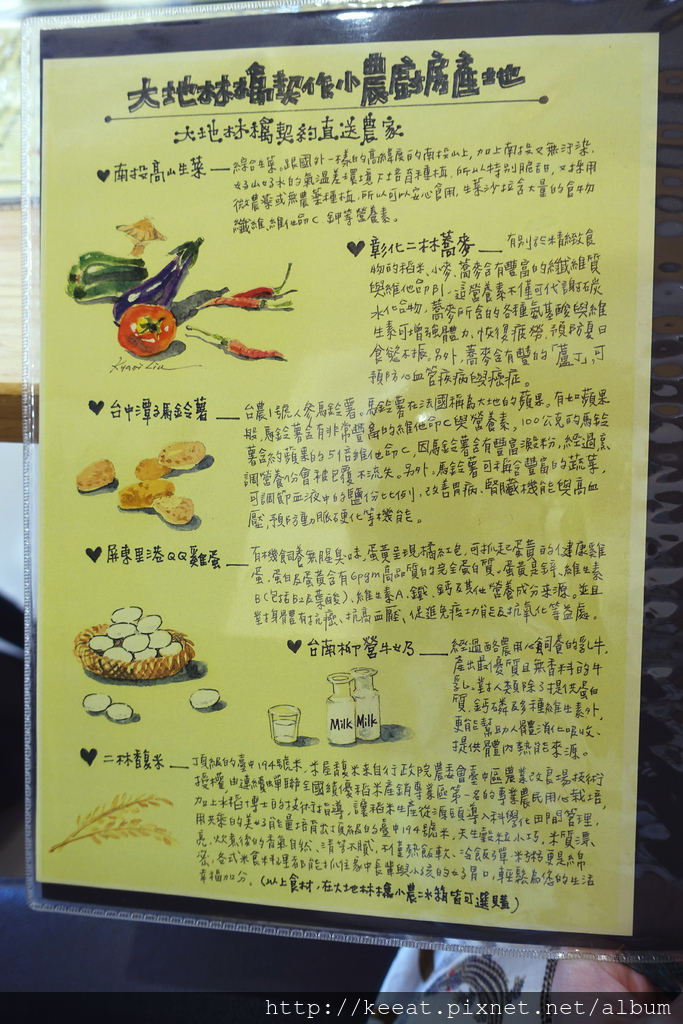 大地林檎契作小農廚房產地
大地林檎契約直送農家
♥南投高山生菜 — 綜合生菜。跟國外一樣的高緯度的南投山上,加上南投又無汙染,
好山好水的氣溫差環境下培育種植,所以特別脆甜,又採用
微農藥或無農藥種植,所以可以安心食用,生菜沙拉含大量的食物
纖維、維他命C、鉀等營養素。
♥彰化二林蕎麥 — 有別於精緻食
物的稻米、小麥,蕎麥含有豐富的纖維質
與維他命B1、這營養素不僅可代謝碳
水化合物,蕎麥所含的各種氨基酸與維
生素可增強體力、恢復疲勞、預防夏日
食慾不振。另外,蕎麥含有豐的「蘆丁」,可
預防心血管疾病與癌症。
Kyaoi Liu
♥台中潭子馬鈴薯 — 台農1號人參馬鈴薯。馬鈴薯在法國稱為大地的蘋果。有如蘋果
般,馬鈴薯含有非常豐富的維他命C與營養素,100公克的馬鈴
薯含約蘋果的5倍維他命C,因馬鈴薯含有豐富澱粉,經過烹
調營養份會被包覆不流失。另外,馬鈴薯可稱含豐富的蔬菜,
可調節血液中的鹽份比例,改善胃病、腎臟機能與高血
壓,預防動脈硬化等機能。
♥屏東里港QQ雞蛋 — 有機飼養無腥臭味,蛋黃呈現橘紅色,可抓起蛋黃的健康雞
蛋。蛋白及蛋黃含有6pgm高品質的完全蛋白質。蛋黃是鋅、維生素
B(包括B2及葉酸)、維生素A、鐵、鈣及其他營養成分來源。並且
對身體有抗癌、抗高血壓、促進免疫功能及抗氧化等益處。
♥台南柳營牛奶 — 經過酪農用心飼養的乳牛,
產出最優質且無香料的牛
乳。對人類除了提供蛋白
質、鈣磷及多種維生素外,
更能幫助人體消化吸收、
提供體內熱能來源。
Milk Milk
♥二林馥米 — 頂級的臺中194號米,米屋馥米來自行政院農委會臺中區農業改良場技術
授權,由連續蟬聯全國績優稻米產銷專業區第一名的專業農民用心栽培,
加上水稻博士的技術指導,讓稻米生產從源頭導入科學化田間管理,
用天藥的美好能量培育出頂級的臺中194號米,天生穀粒小巧,米質漂
亮,炊煮後的香氣自然、清芳不膩,不僅熱飯軟、冷飯彈、米粥更是綿
密,各式米食料理都能抓住家中長輩與小孩的好胃口,輕鬆為您的生活
幸福加分。(以上食材,在大地林檎小農冰箱皆可選購)
http://keeat.pixnet.net/album